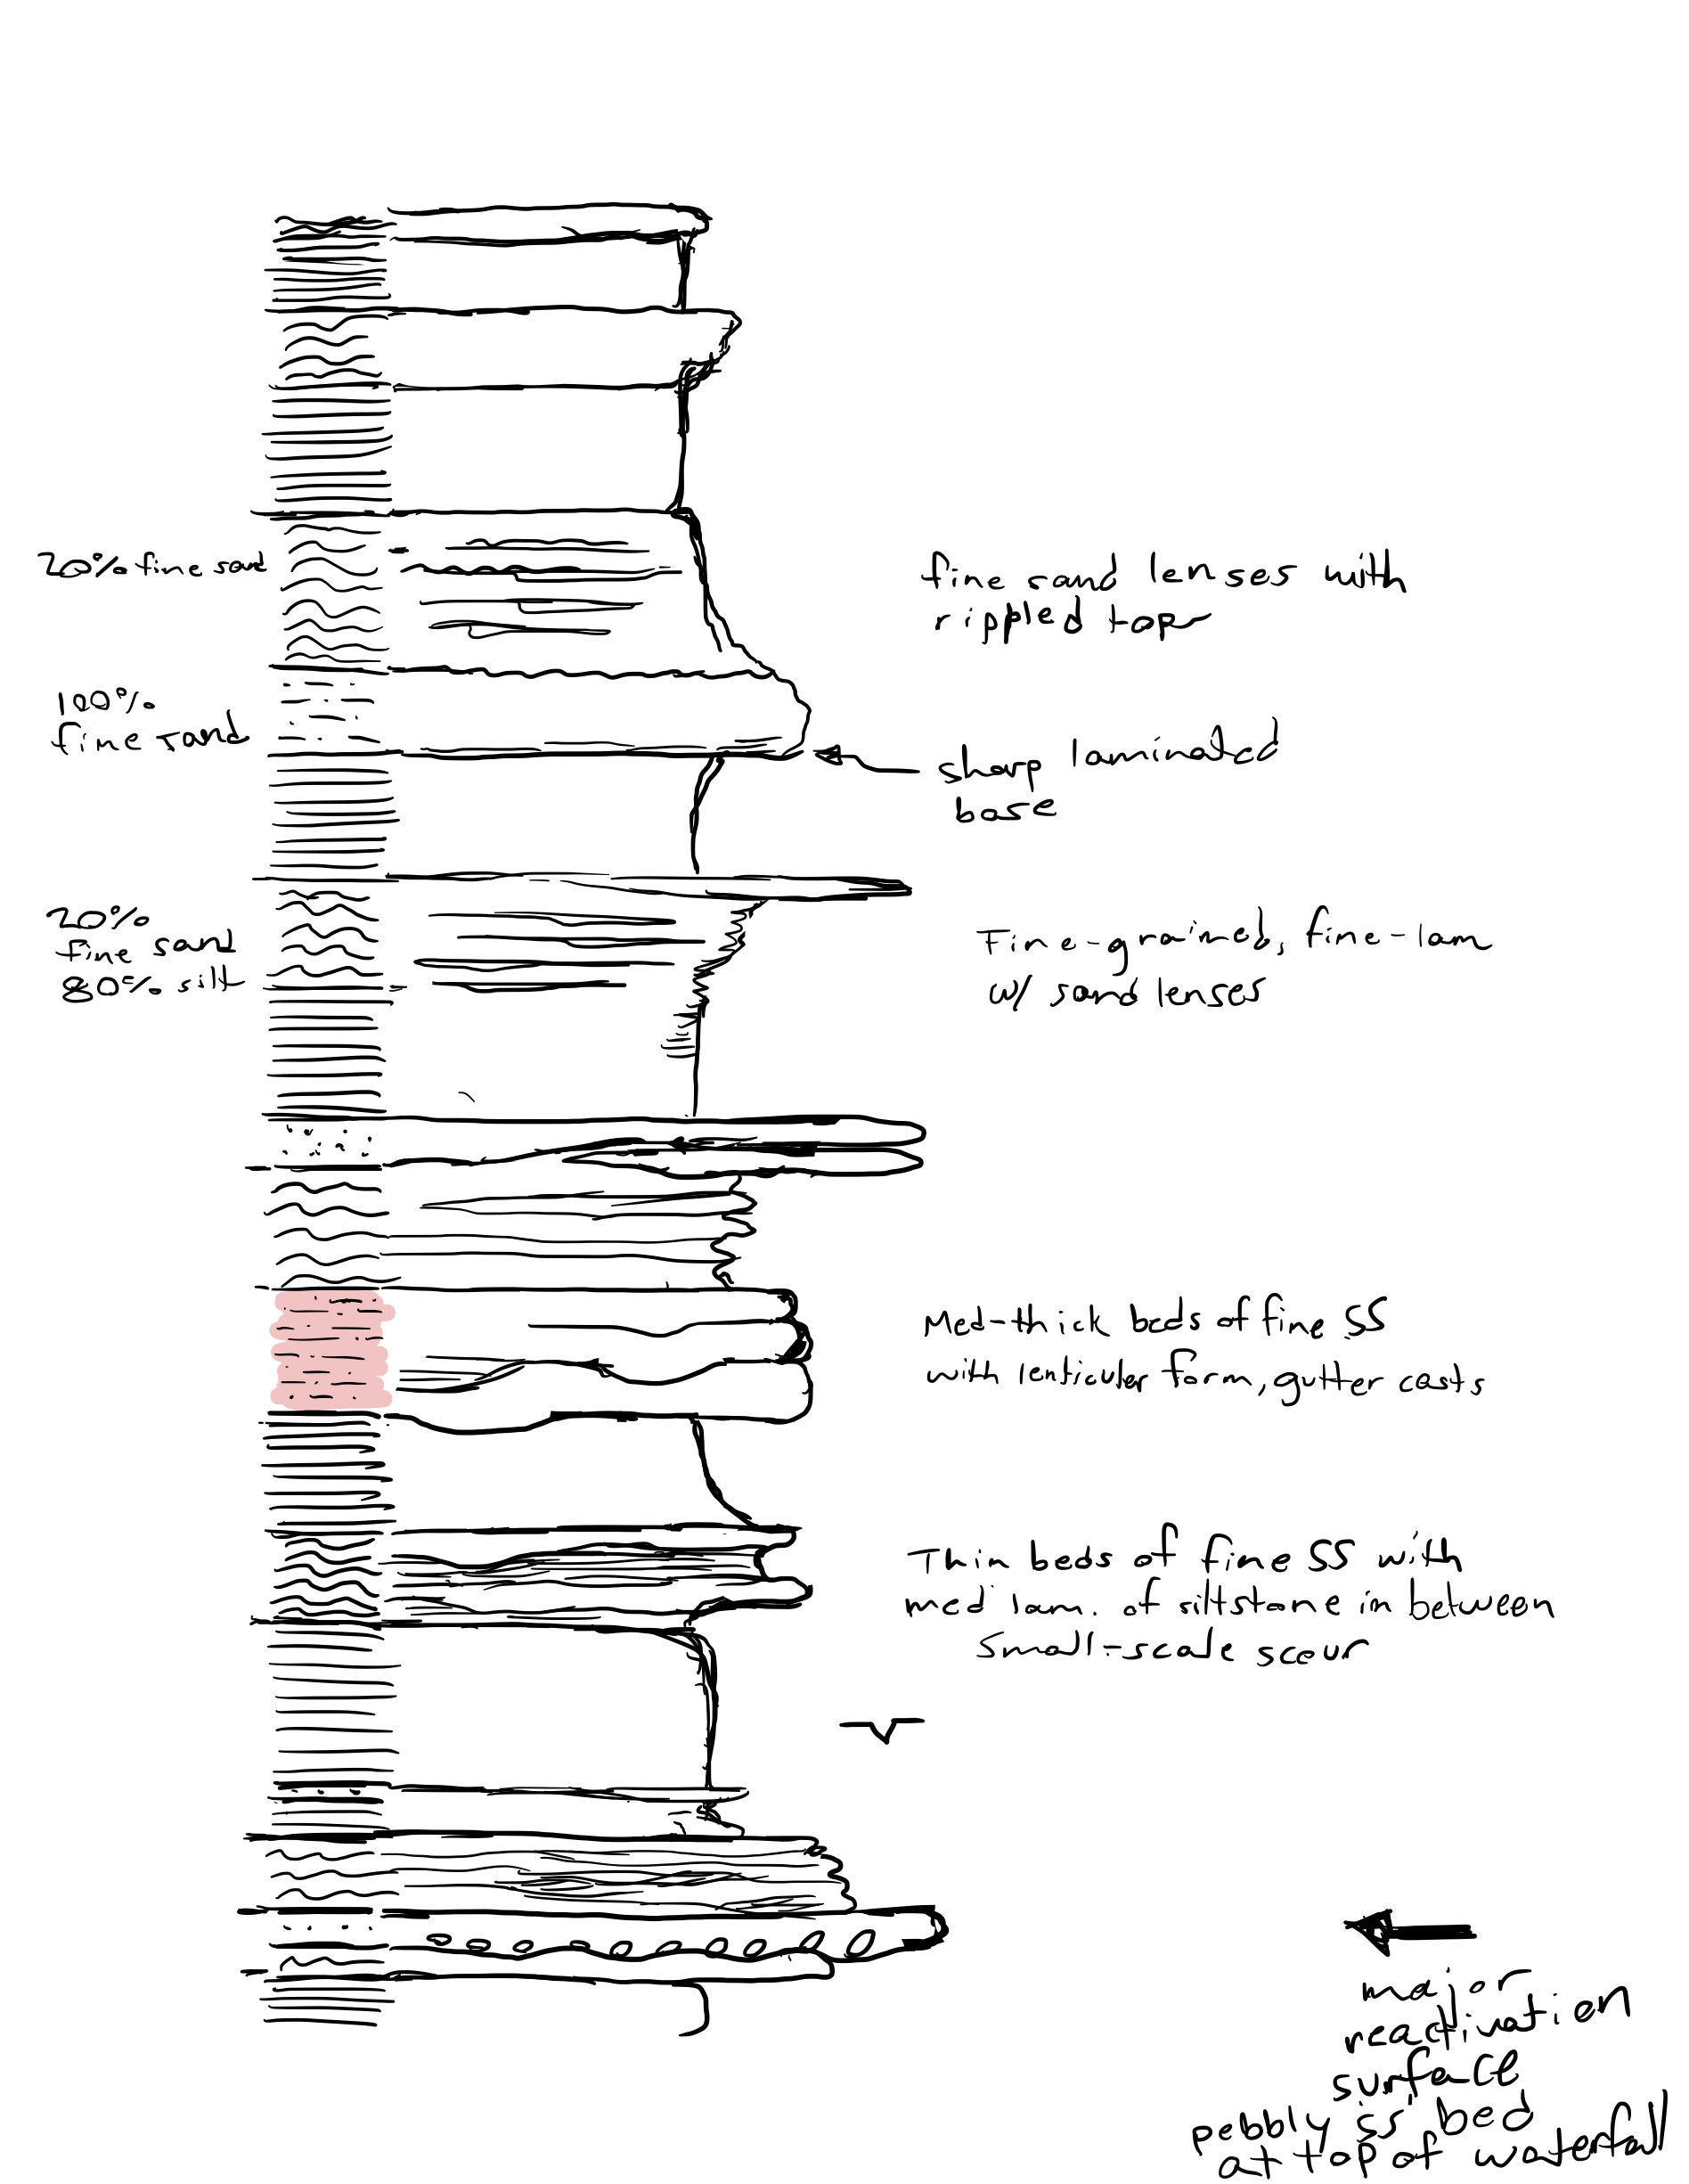 20% fine sand
fine sand lenses with
rippled top
100%
fine sand
sharp laminated
base
20%
fine sand
80% silt
Fine-grained, fine-lam
w/ sand lenses
Med-thick beds of fine SS
with lenticular form, gutter casts
Thin beds of fine SS with
med lam. of siltstone in between
small-scale scour
major
reactivation
surface
pebbly ss bed
at top of waterfall